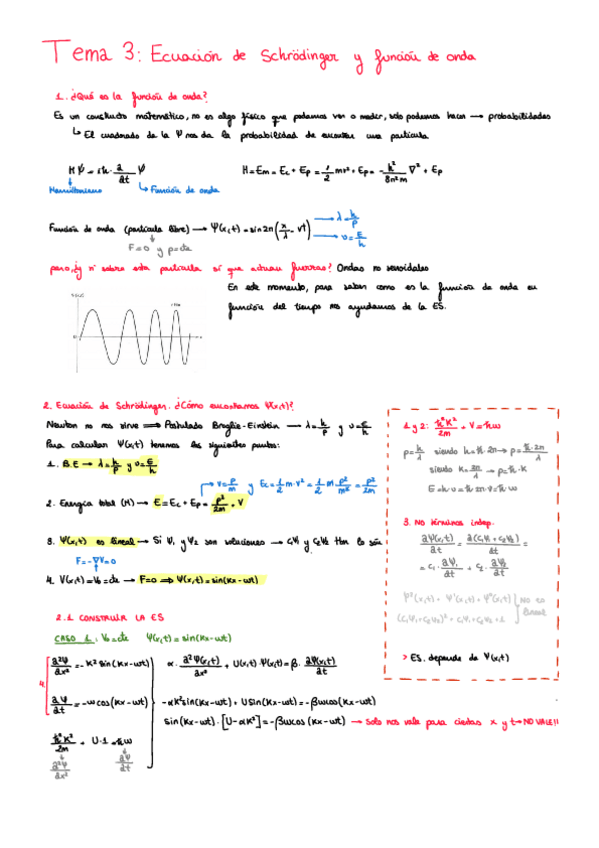 Tema 3: Ecuación de Schrödinger y función de onda
1. ¿Qué es la función de onda?
Es un constructo matemático, no es algo físico que podamos ver o medir, solo podemos hacer → probabilidades
↳ El cuadrado de la Ψ nos da la probabilidad de encontrar una partícula
HΨ = iħ · ∂/∂t Ψ
H = Em = Ec + Ep = 1/2 mv² + Ep = - h²/8π²m ∇² + Ep
Hamiltoniano
Función de onda
Función de onda (partícula libre) → Ψ(x,t) = sin2π(x/λ - νt)
λ = h/p
ν = E/h
F=0 y p=cte
pero, ¿y si sobre esta partícula sí que actúan fuerzas? Ondas no senoidales
En este momento, para saber como es la función de onda en
función del tiempo nos ayudamos de la ES.
2. Ecuación de Schrödinger. ¿Cómo encontramos Ψ(x,t)?
Newton no nos sirve ⟹ Postulado Broglie-Einstein → λ = h/p y ν = E/h
Para calcular Ψ(x,t) tenemos los siguientes puntos:
1. B.E → λ = h/p y ν = E/h
v = p/m y Ec = 1/2 m·v² = 1/2 m p²/m² = p²/2m
2. Energía total (H) → E = Ec + Ep = p²/2m + V
3. Ψ(x,t) es lineal → Si Ψ₁ y Ψ₂ son soluciones → c₁Ψ₁ y c₂Ψ₂ tbn lo son
F = -∇V = 0
4. V(x,t) = V₀ = cte → F=0 ⟹ Ψ(x,t) = sin(Kx - ωt)
1 y 2: ħ²K²/2m + V = ħω
p = h/λ siendo h = ħ·2π → p = ħ·2π/λ
siendo K = 2π/λ → p = ħ·K
E = h·ν = ħ·2π·ν = ħω
3. No términos indep.
∂Ψ(x,t)/∂t = ∂(c₁Ψ₁ + c₂Ψ₂)/∂t =
= c₁ · ∂Ψ₁/∂t + c₂ · ∂Ψ₂/∂t
Ψ²(x,t) + Ψ¹(x,t) + Ψ⁰(x,t)
(c₁Ψ₁ + c₂Ψ₂)² + c₁Ψ₁ + c₂Ψ₂ + 1
NO es lineal
> ES. depende de V(x,t)
2.1 CONSTRUIR LA ES
CASO 1: V₀ = cte Ψ(x,t) = sin(Kx - ωt)
4.
∂²Ψ/∂x² = -K² sin(Kx - ωt)
α · ∂²Ψ(x,t)/∂x² + U(x,t)·Ψ(x,t) = β · ∂Ψ(x,t)/∂t
∂Ψ/∂t = -ωcos(Kx - ωt)
-αK²sin(Kx - ωt) + Usin(Kx - ωt) = -βωcos(Kx - ωt)
sin(Kx - ωt) · [U - αK²] = -βωcos(Kx - ωt) → Solo nos vale para ciertas x y t → NO VALE!!
ħ²K²/2m + U·1 = ħω
∂²Ψ/∂x²
∂Ψ/∂t